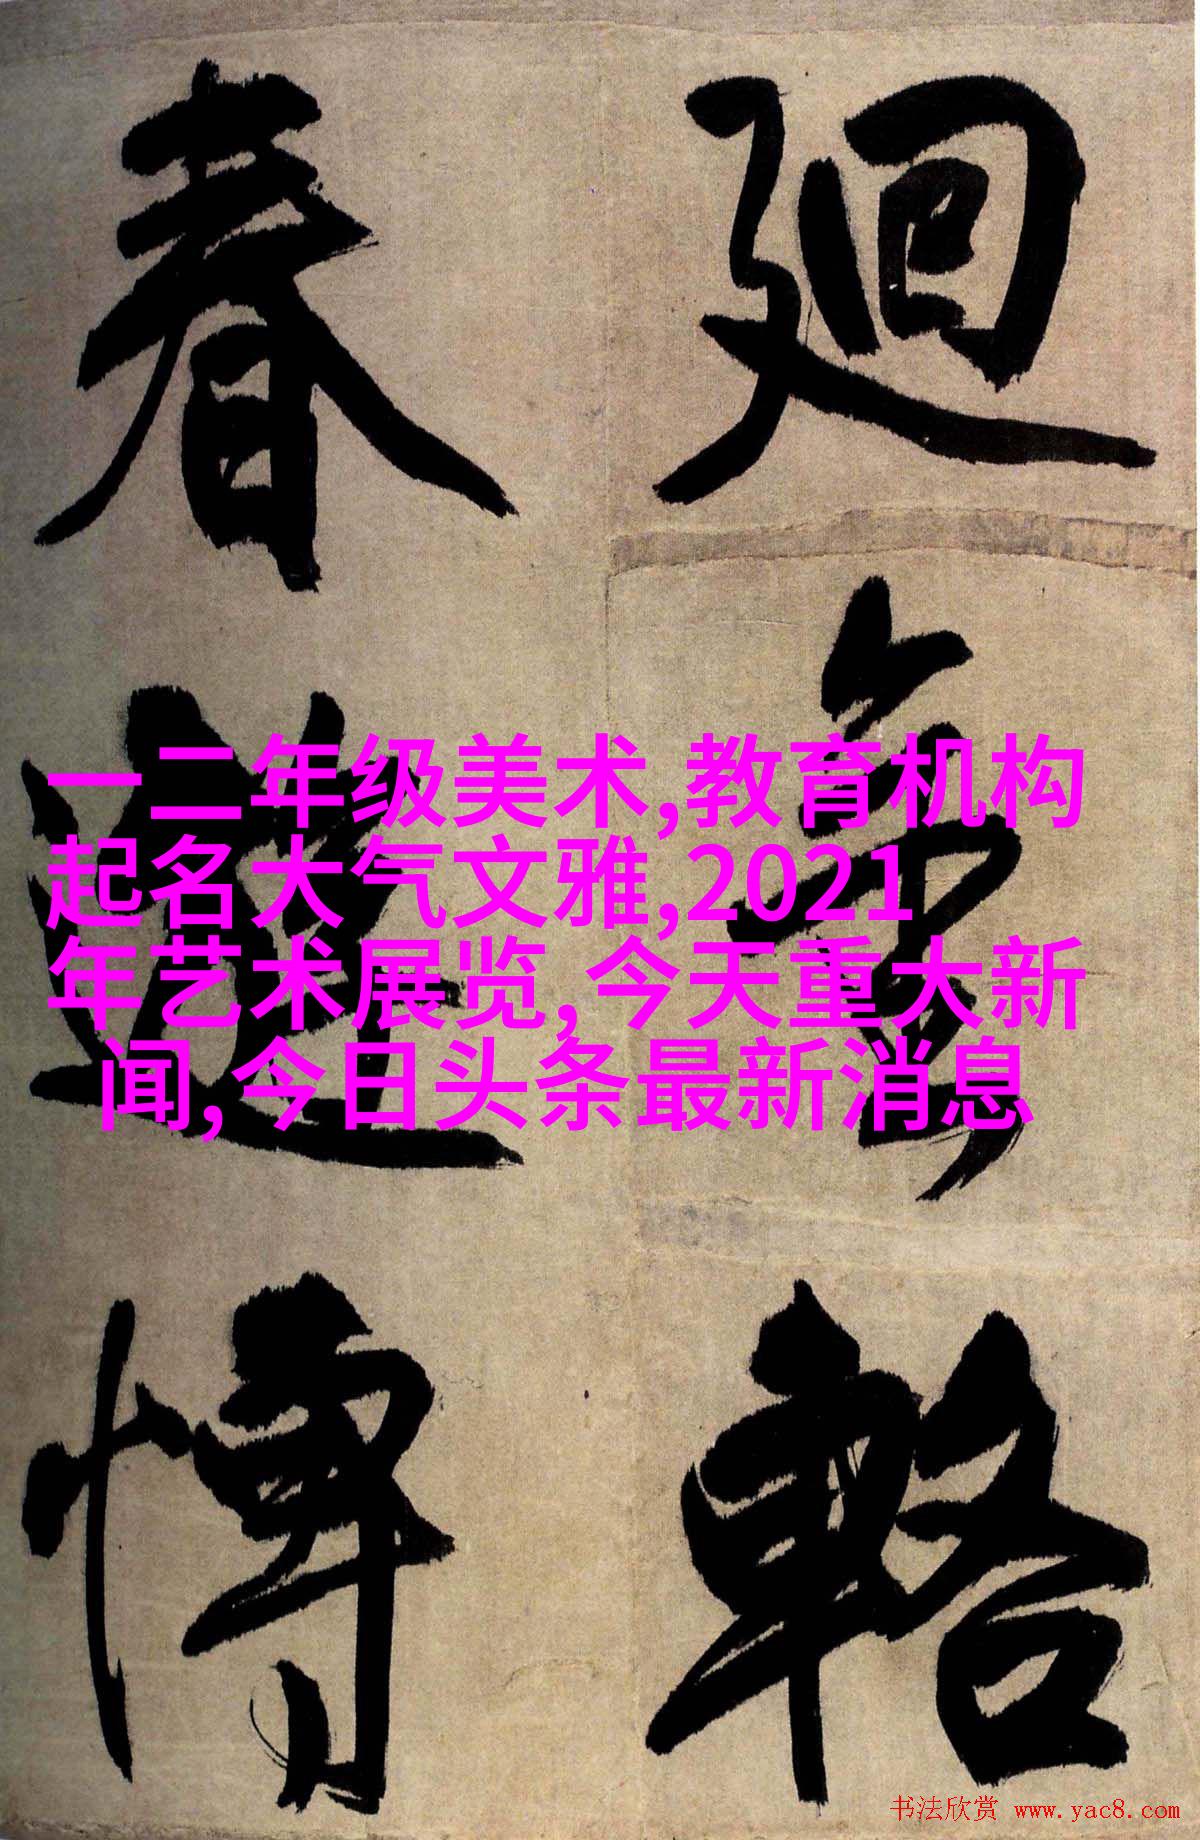 廻
輅
春
遊
博
一二年级美术,教育机构
起名大气文雅,2021
年艺术展览,今天重大新
闻,今日头条最新消息
书法欣赏 www.yac8.com